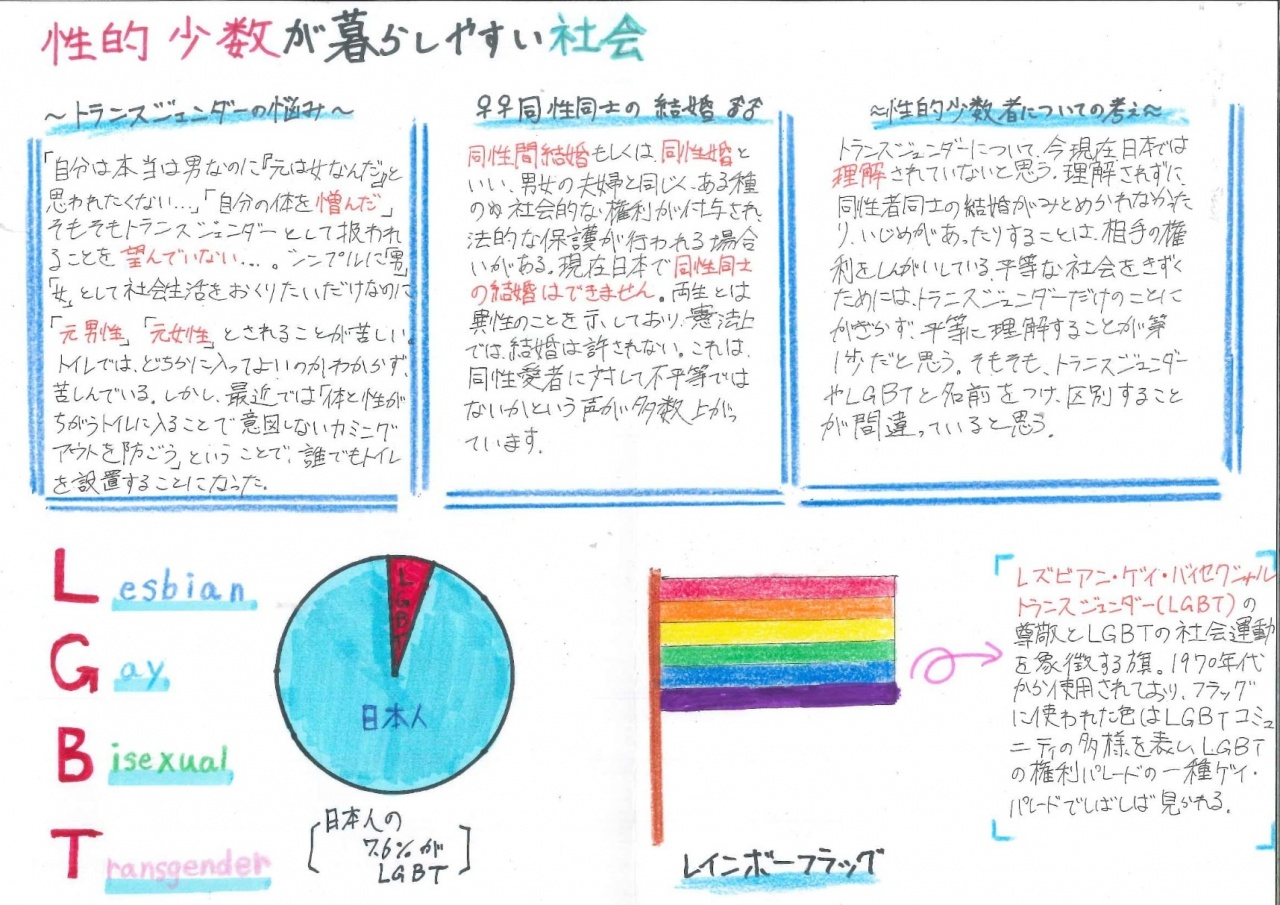 性的少数が暮らしやすい社会
～トランスジェンダーの悩み～
「自分は本当は男なのに『元は女なんだ』と
思われたくない…」「自分の体を憎んだ」
そもそもトランスジェンダーとして扱われ
ることを望んでいない…。シンプルに「男」
「女」として社会生活をおくりたいだけなのに
「元男性」「元女性」とされることが苦しい。
トイレでは、どちらに入ってよいのかわからず、
苦しんでいる。しかし、最近では「体と性が
ちがうトイレに入ることで意図しないカミング
アウトを防ごう」ということで、誰でもトイレ
を設置することになった。
♀♀同性同士の結婚♂♂
同性間結婚もしくは、同性婚と
いい、男女の夫婦と同じく、ある種
の社会的な権利が付与され、
法的な保護が行われる場合
いがある。現在日本で同性同士
の結婚はできません。両生とは
異性のことを示しており、憲法上
では、結婚は許されない。これは、
同性愛者に対して不平等では
ないかという声が多数上がっ
ています。
～性的少数者についての考え～
トランスジェンダーについて、今現在日本では
理解されていないと思う。理解されずに、
同性者同士の結婚がみとめられなかった
り、いじめがあったりすることは、相手の権
利をしんがいしている。平等な社会をきずく
ためには、トランスジェンダーだけのことに
かぎらず、平等に理解することが第
1歩だと思う。そもそも、トランスジェンダー
やLGBTと名前をつけ、区別すること
が間違っていると思う。
Lesbian
Gay
Bisexual
Transgender
LGBT
日本人
日本人の
7.6%が
LGBT
レインボーフラッグ
レズビアン・ゲイ・バイセクシャル
トランスジェンダー(LGBT)の
尊敬とLGBTの社会運動
を象徴する旗。1970年代
から使用されており、フラッグ
に使われた色はLGBTコミュ
ニティの多様を表し、LGBT
の権利パレードの一種ゲイ・
パレードでしばしば見られる。